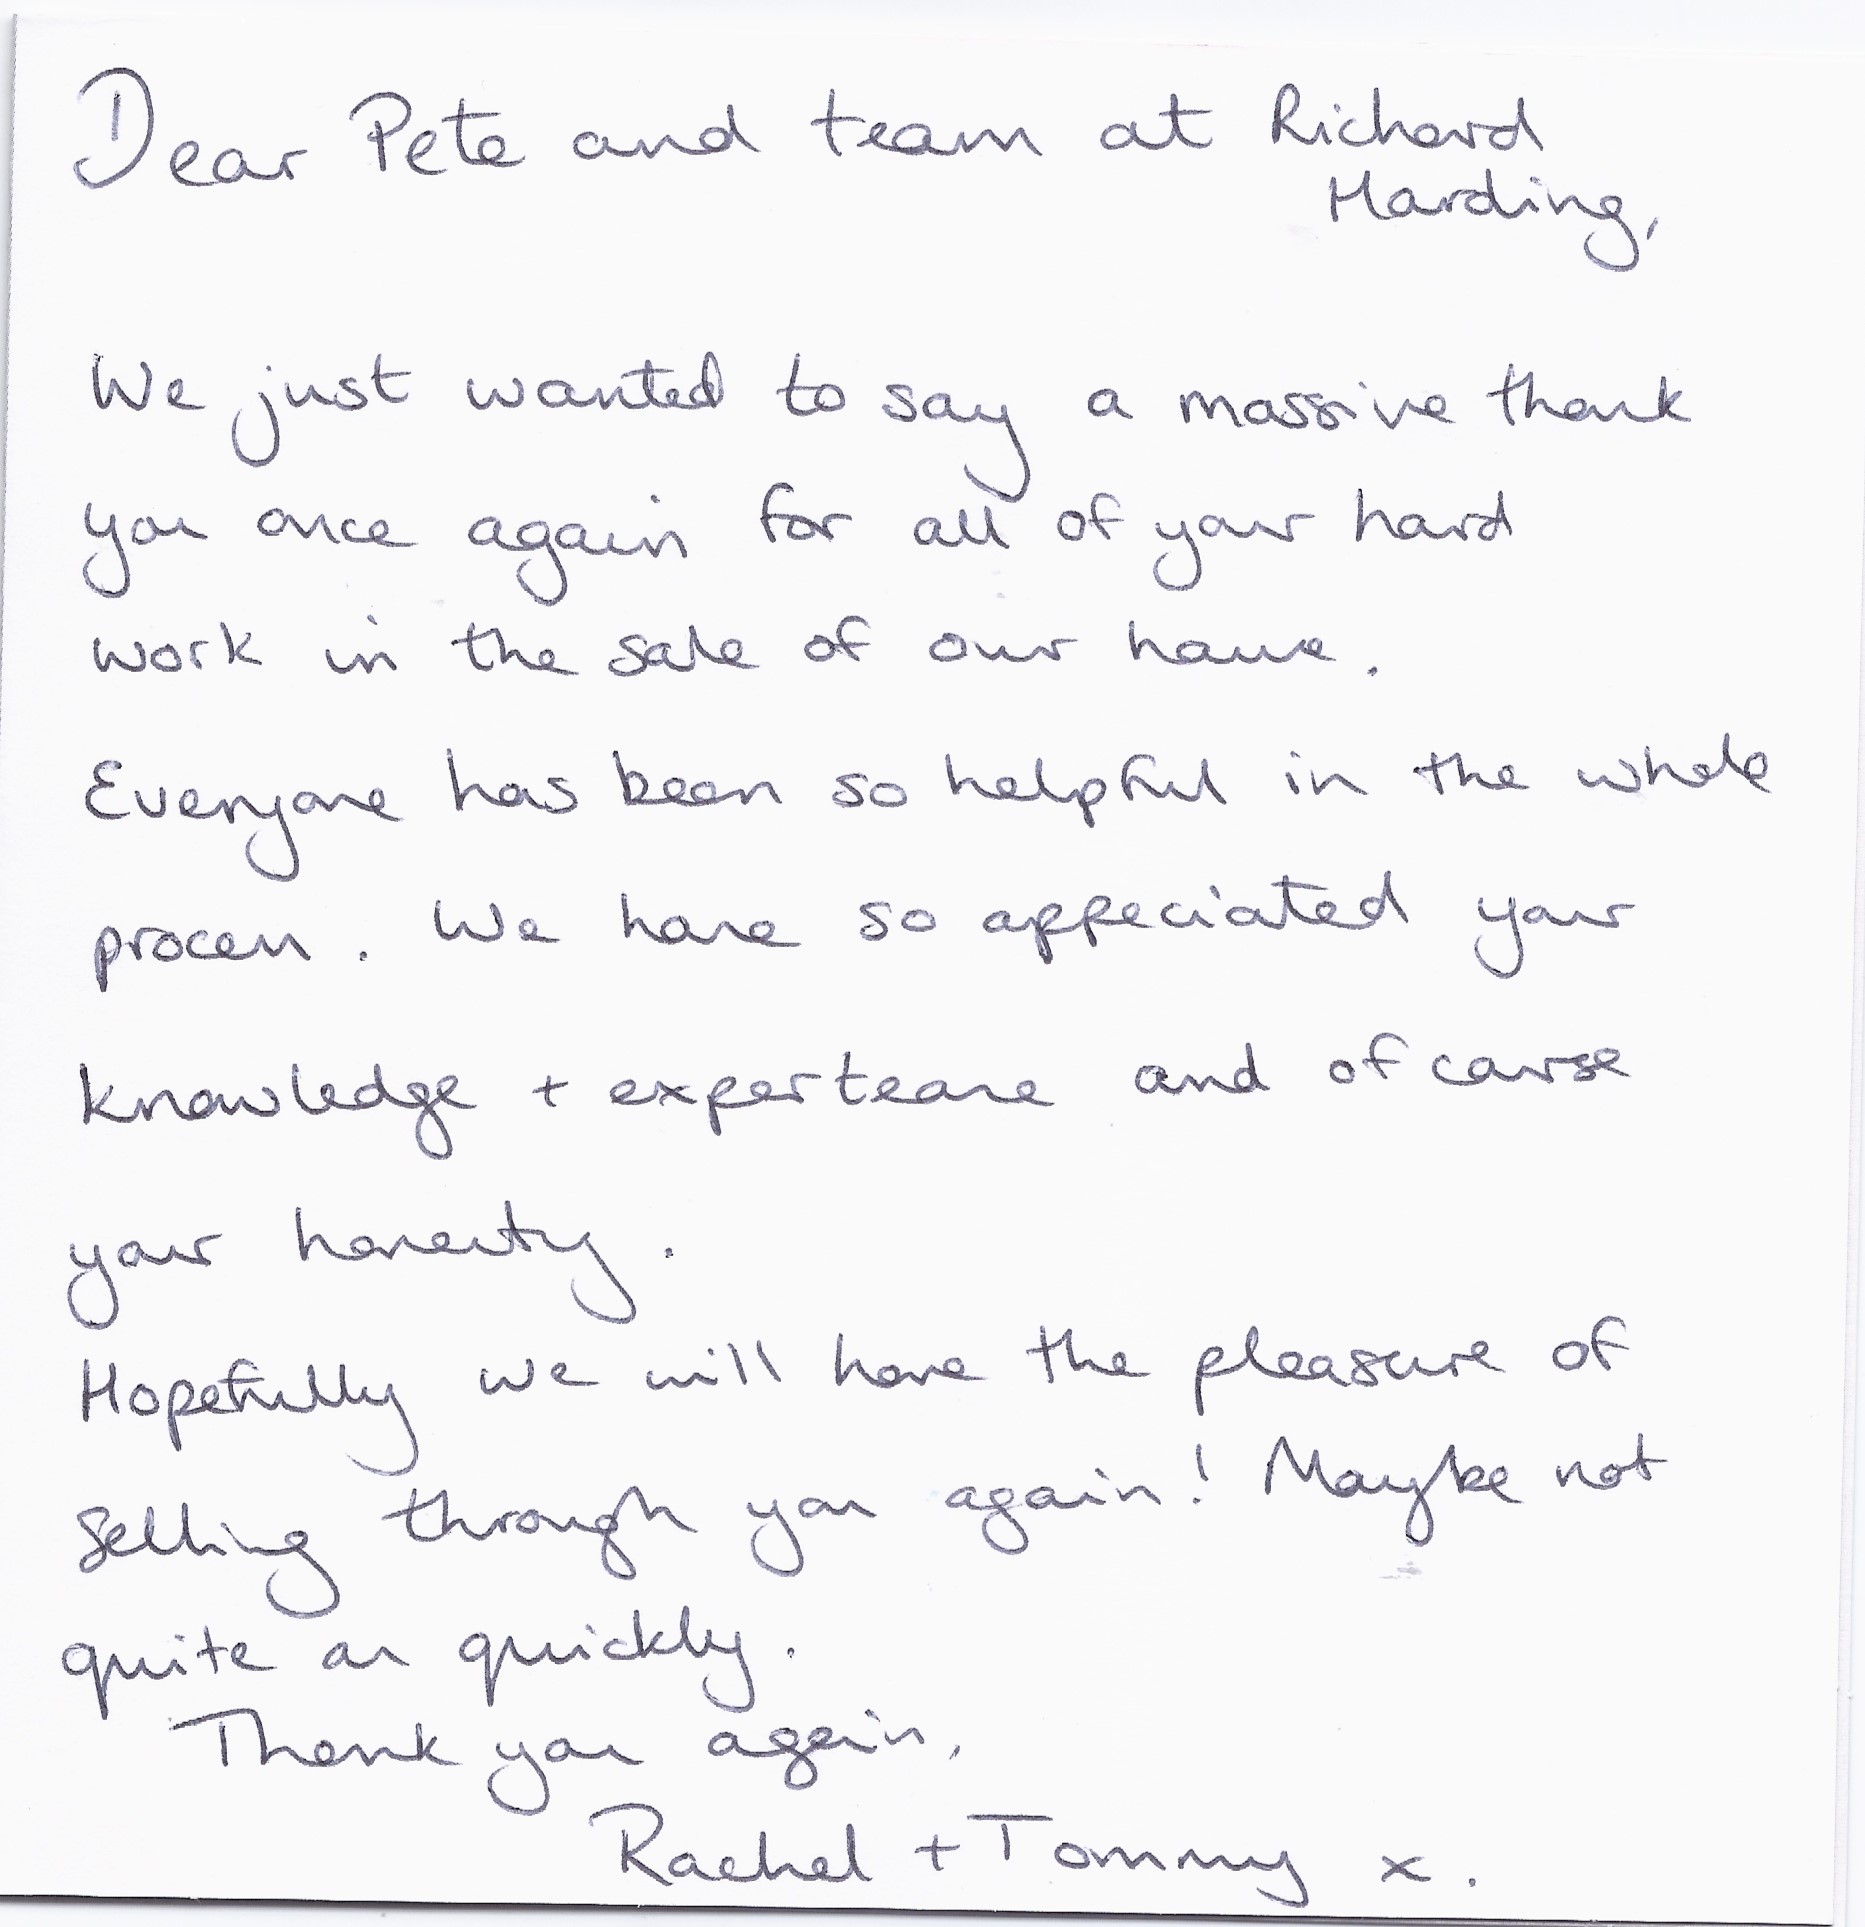 Dear Pete and team at Richard
Harding,
We just wanted to say a massive thank
you once again for all of your hard
work in the sale of our house.
Everyone has been so helpful in the whole
process. We have so appeciated your
knowledge + experteare and of course
your honesty.
Hopefully we will have the pleasure of
selling through you again! Maybe not
quite as quickly.
Thank you again,
Rachel + Tommy x.